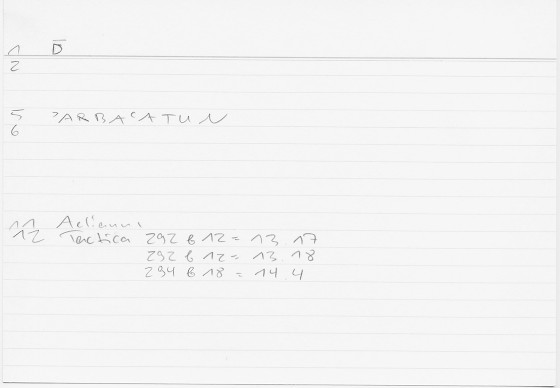 1 D̅
2
5 ʾARBAʿATUN
6
11 Aelianus
12 Tactica 292 b 12 = 13, 17
292 b 12 = 13. 18
294 b 18 = 14.4